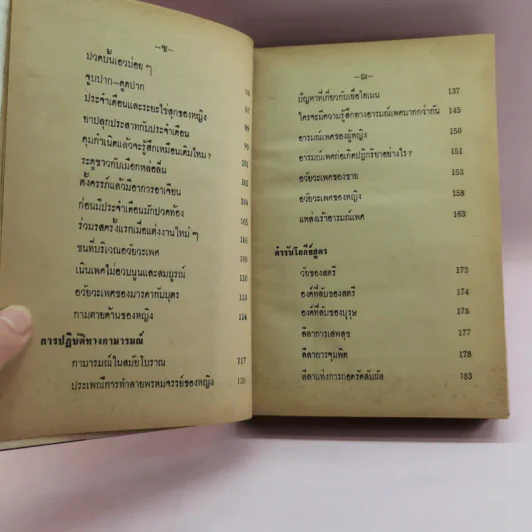 —ช—
ปวดบั้นเอวบ่อย ๆ
จูบปาก–ดูดปาก 98
ประจำเดือนและระยะไข่สุกของหญิง
ยาปลุกประสาทกับประจำเดือน
คุมกำเนิดแล้วจะรู้สึกเหมือนเดิมไหม?
ระดูขาวกับเมือกหล่อลื่น 101
ตั้งครรภ์แล้วมีอาการอาเจียน 101
ก่อนมีประจำเดือนมักปวดท้อง
ร่วมรสครั้งแรกเมื่อแต่งงานใหม่ ๆ 106
ขนที่บริเวณอวัยวะเพศ
เนินเพศไม่อวบนูนและสมบูรณ์ 111
อวัยวะเพศของมารดากับบุตร 114
กามตายด้านของหญิง 114
การปฏิบัติทางกามารมณ์
กามารมณ์ในสมัยโบราณ 117
ประเพณีการทำลายพรหมจรรย์ของหญิง 126
—ฌ—
ปัญหาที่เกี่ยวกับเยื่อไฮเมน 137
ใครจะมีความรู้สึกทางอารมณ์เพศมากกว่ากัน 145
อารมณ์เพศของผู้หญิง 150
อารมณ์เพศก่อเกิดปฏิกิริยาอย่างไร? 151
อวัยวะเพศของชาย 153
อวัยวะเพศของหญิง 158
แหล่งเร้าอารมณ์เพศ 163
ตำรับโลกีย์สูตร
วัยของสตรี 173
องค์ที่ลับของสตรี 174
องค์ที่ลับของบุรุษ 175
ลีลาการเสพสุข 177
ลีลาการจุมพิต 178
ลีลาแห่งการกอดรัดสัมผัส 183